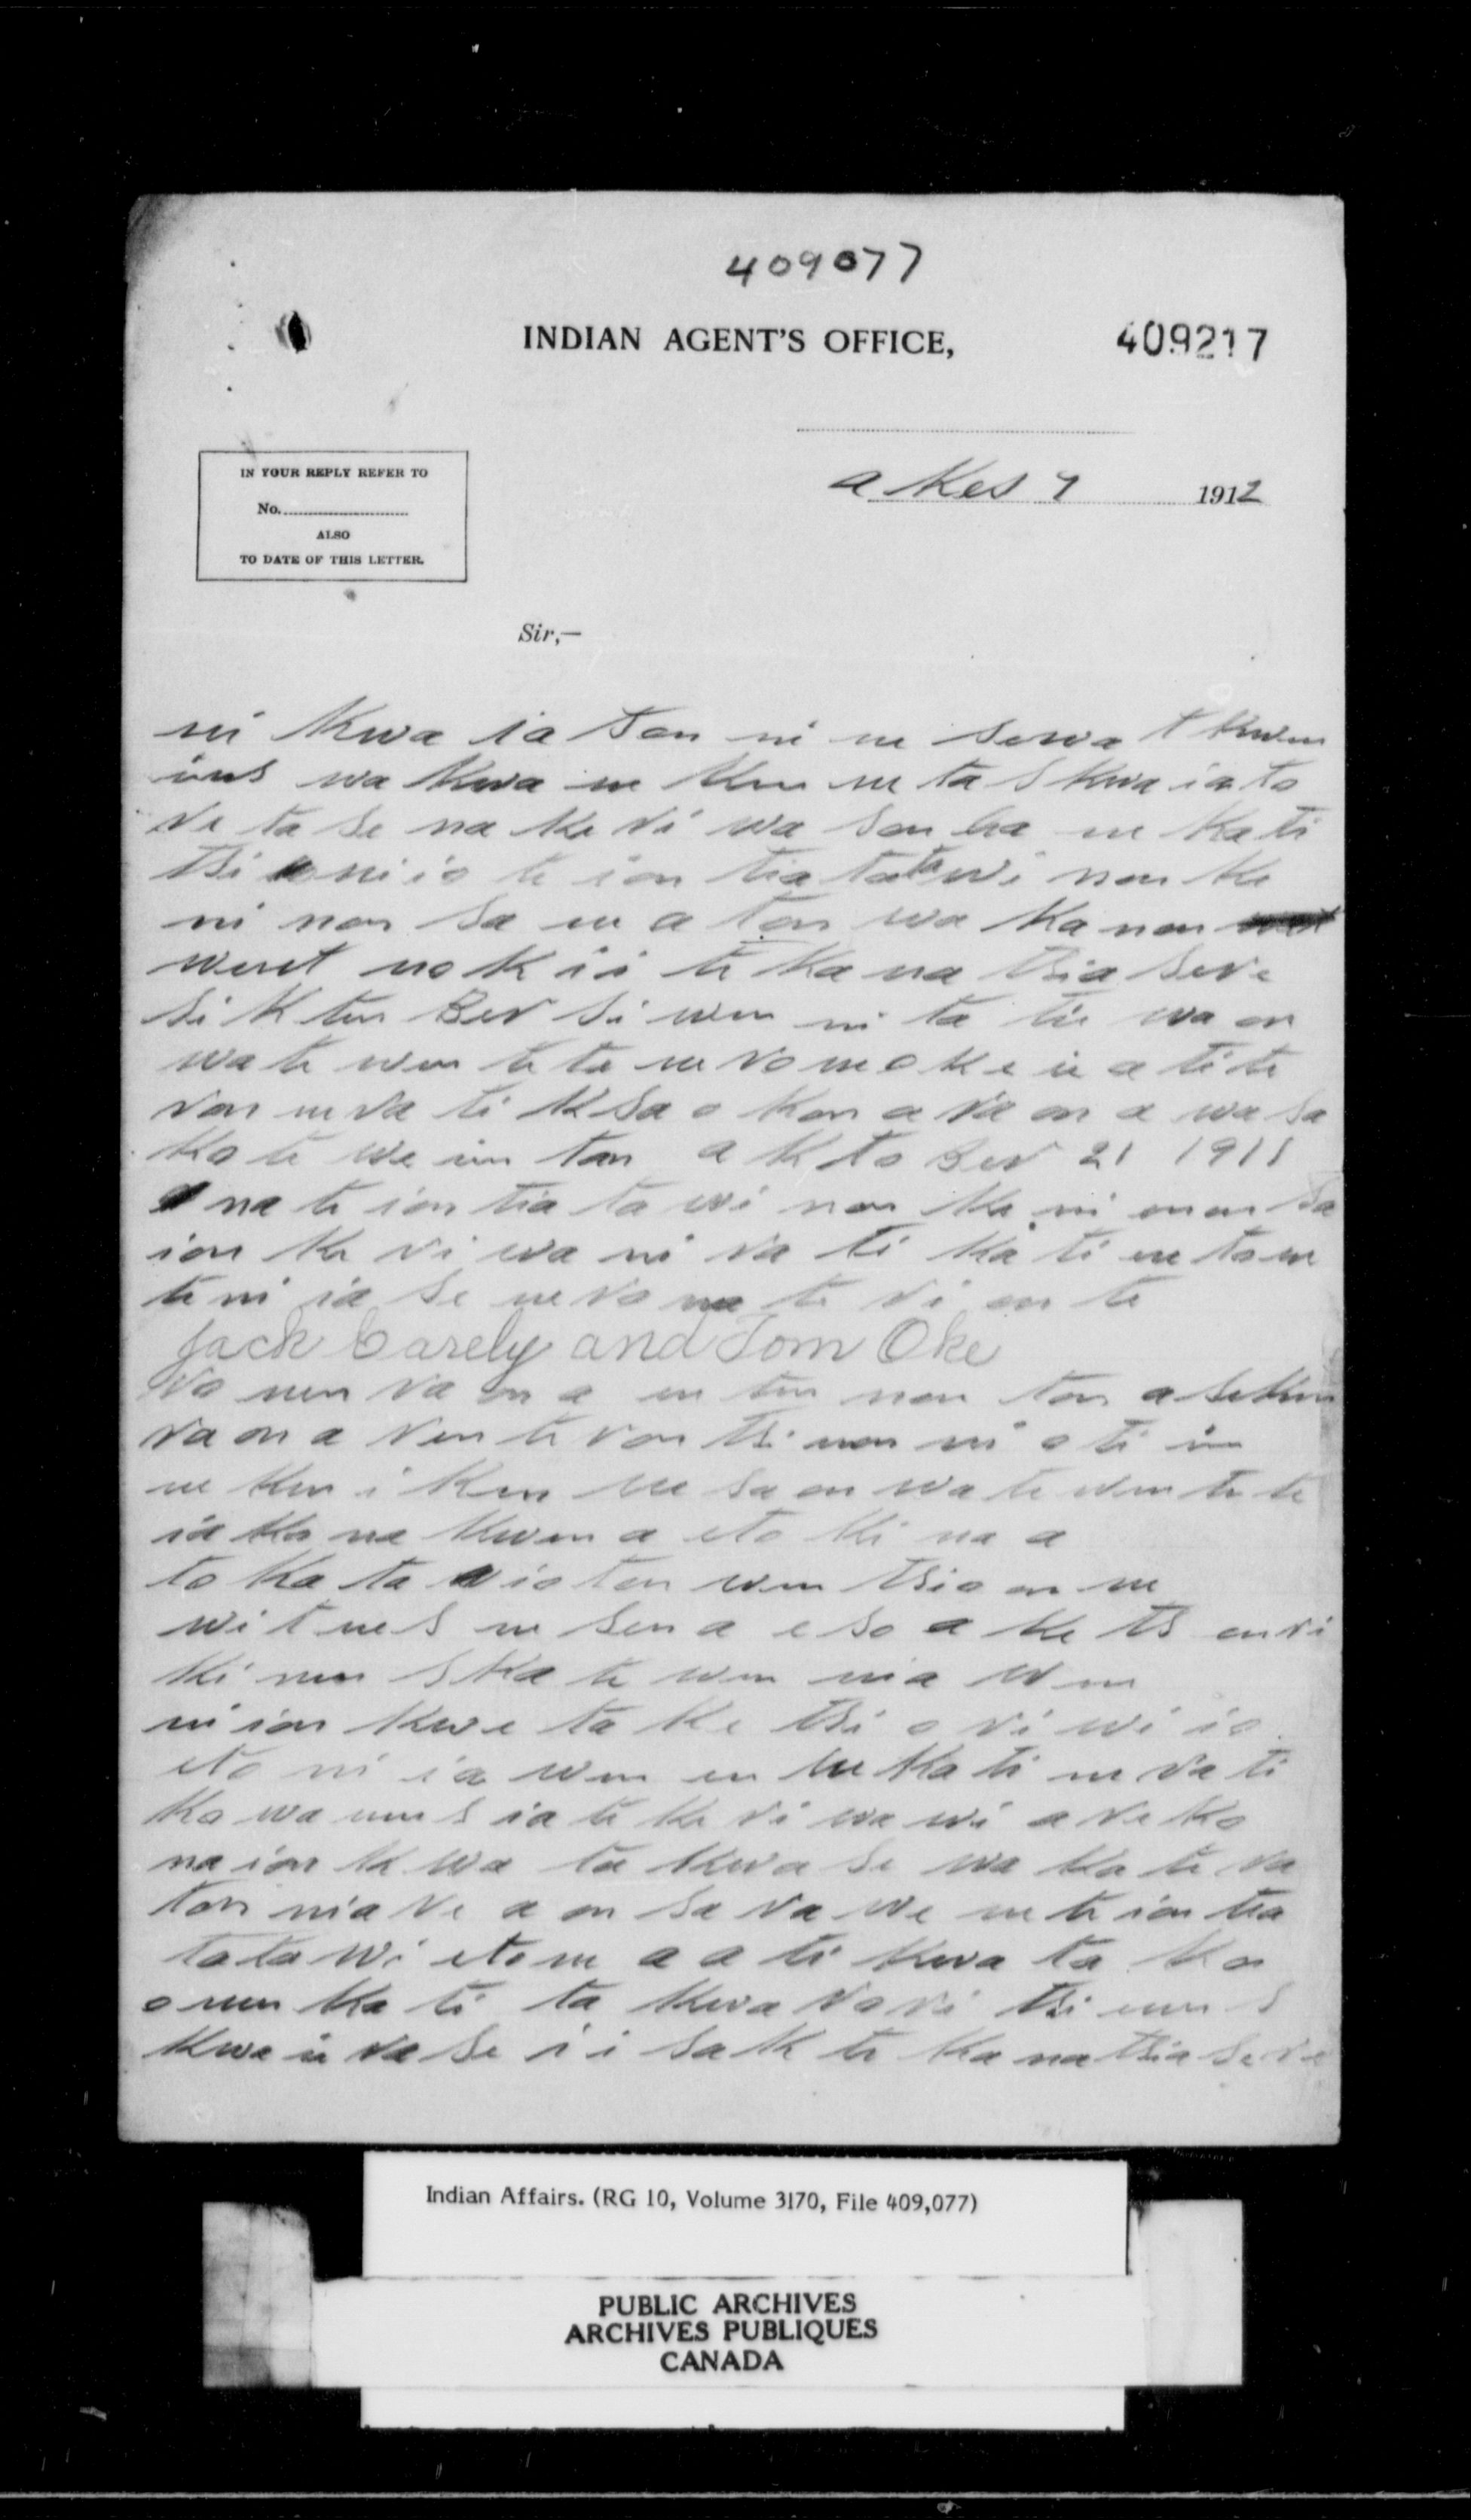 409077
INDIAN AGENT'S OFFICE,
409217
a kes 7 1912
IN YOUR REPLY REFER TO
No.
ALSO
TO DATE OF THIS LETTER.
Sir,—
ni kwa ia ton ni ne sewa t kwen
iens wa kwa ne ken ne ta s kwa ia to
re ta se na ke ri wa son ha ne ka ti
tsi ni io te ion tia ta ta wi non ke
ni non sa ne a ton wa ka non
weret no k i i te ka na tsia sere
si k ten Ber si wen ni ta tie wa on
wa te wen te ta ne ro ne o ke ie a ti te
ron ne ra ti k sa o kon a ra on a wa sa
ko te we ien ton a k to Ber 21 1911
na te ion tia ta wi non ke ni onon sa
ion ke ri wa ni ra ti ka ti ne to ne
te ni ia se ne ro na te ri on te
Jack Carely and Tom Oke
ro nen ra on a en ten non ton a seken
ra on a ren te ron tsi non ni o ti ien
ne ken i ken ne sa on wa te wen te te
ia ko na kwen a eto ki na a
to ka ta io ton wen tsio on ne
wi t nes ne sen a e so a ke ts on ri
ki nen s ka te wen nia wen
ni ion kwe ta ke tsi o ri wi io
eto ni ia wen en ne ka ti ne ra ti
ko wa nen s ia te ke ri wa wi a re ko
na ion k wa ta kwa se wa ka te ra
ton nia re a on sa ra we ne te ion tia
ta ta wi eto ne a a ti kwa ta ko
o nen ka ti ta kwa ro ri tsi nen s
kwa ie ra se i i sa k te ka na tsia se re
Indian Affairs. (RG 10, Volume 3170, File 409,077)
PUBLIC ARCHIVES
ARCHIVES PUBLIQUES
CANADA